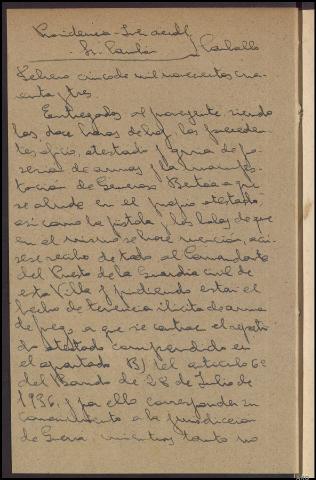 Providencia = Juez accdl
Sr. Caulan } Carballo
Febrero cinco de mil novecientos cua-
renta y tres.
Entregados al proveyente, siendo
las doce horas de hoy, los preceden-
tes oficio, atestado y guia de po-
sesion de armas y la manifes-
tación de Generoso Bertoa a que
se alude en el propio atestado,
asi como la pistola y las balas de que
en el mismo se hace mención, acú
sese recibo de todo al Comandante
del Puesto de la Guardia civil de
esta Villa y pudiendo estar el
hecho de tenencia ilicita de arma
de fuego a que se contrae el repeti-
do atestado comprendido en
el apartado B) del articulo 6º
del Bando de 28 de Julio de
1936, y por ello corresponder su
conocimiento a la jurisdiccion
de Guerra, mientras tanto no